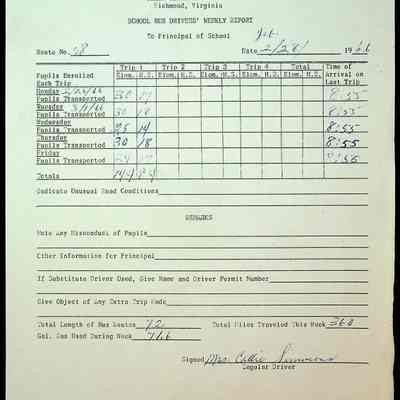 Richmond, Virginia
SCHOOL BUS DRIVERS' WEEKLY REPORT
To Principal of School
Route No. 68 Date 2/28/ 1966
Trip 1 Trip 2 Trip 3 Trip 4 Total Time of
Pupils Enrolled Elem. H.S. Elem. H.S. Elem. H.S. Elem. H.S. Elem. H.S. Arrival on
Each Trip Last Trip
Monday 2/28/66
Pupils Transported 30 17 8:55
Tuesday 3/1/66
Pupils Transported 30 18 8:55
Wednesday
Pupils Transported 25 14 8:55
Thursday
Pupils Transported 30 18 8:55
Friday
Pupils Transported 17 8:55
Totals 144 84
Indicate Unusual Road Conditions
REMARKS
Note Any Misconduct of Pupils
Other Information for Principal
If Substitute Driver Used, Give Name and Driver Permit Number
Give Object of Any Extra Trip Made
Total Length of Bus Routes 72 Total Miles Traveled This Week 360
Gal. Gas Used During Week 76.6
Signed Mrs. Callie Simmons
Regular Driver